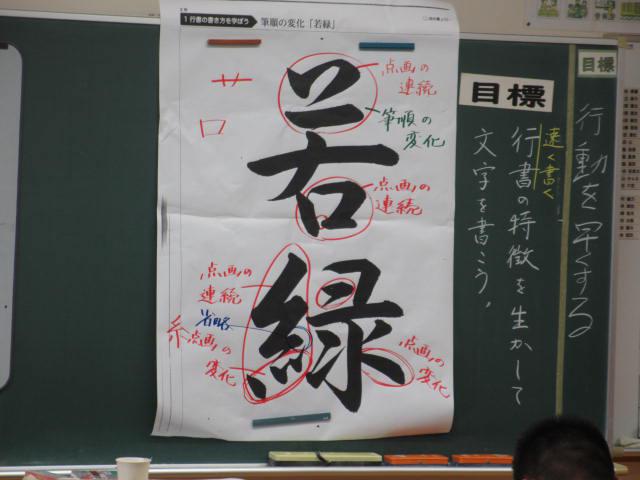 1 行書の書き方を学ぼう
筆順の変化「若緑」
若緑
艹
口
点画の
連続
筆順の
変化
点画の
連続
点画の
連続
省略
糸
点画の
変化
点画の
変化
目標
速く書く
行書の特徴を生かして
文字を書こう。
目標
行動を早くする